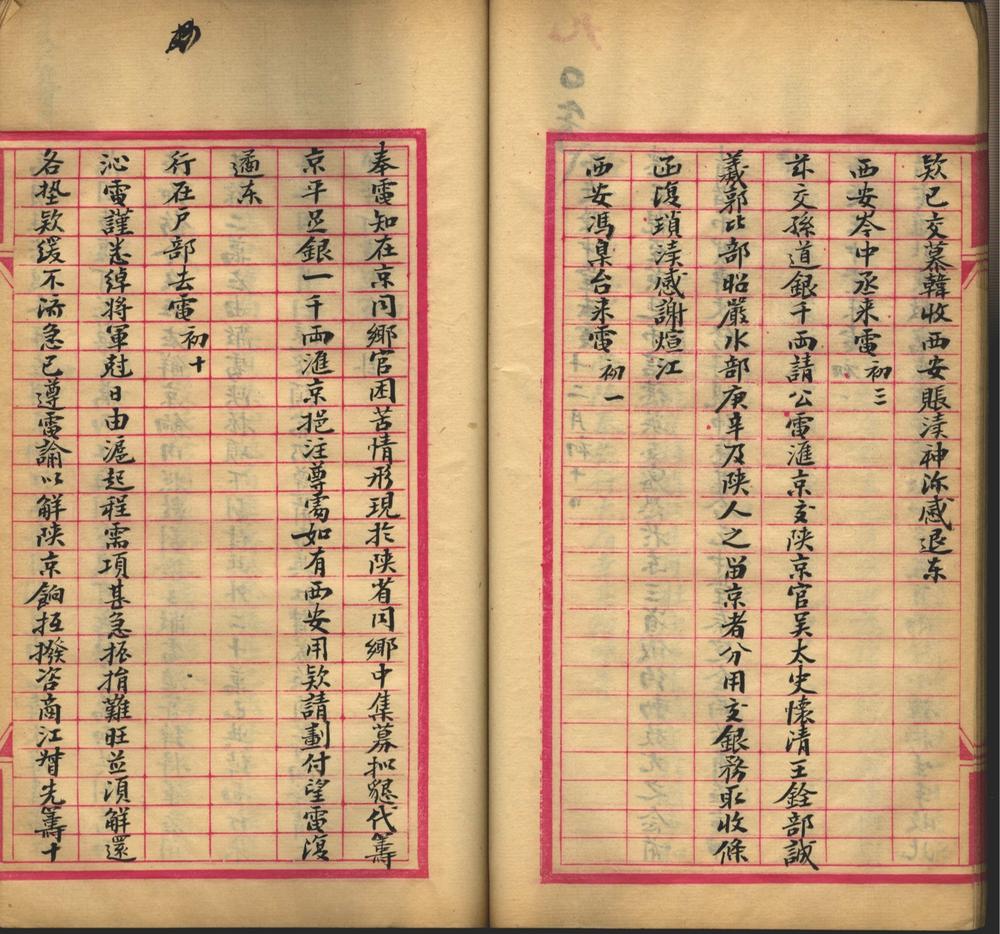 欵已交慕韓收西安賬渎神泲感退东
西安岑中丞来電初三
兹交孫道銀千両請公電滙京交陝京官吴太史懷清王銓部誠
羲郭比部昭嚴水部庚辛及陝人之留京者分用交銀務取收條
函復瑣渎感謝煊江
西安馮臬台来電初一
奉電知在京同鄉官困苦情形現於陝省同鄉中集募扣懇代籌
京平足銀一千両滙京挹注尊寓如有西安用欵請劃付望電復
遹东
行在户部去電初十
沁電謹悉綽将軍尅日由滬起程需項甚急振捐難旺並湏解還
各墊欵缓不济急已遵電諭以解陝京餉抵撥咨商江督先籌十